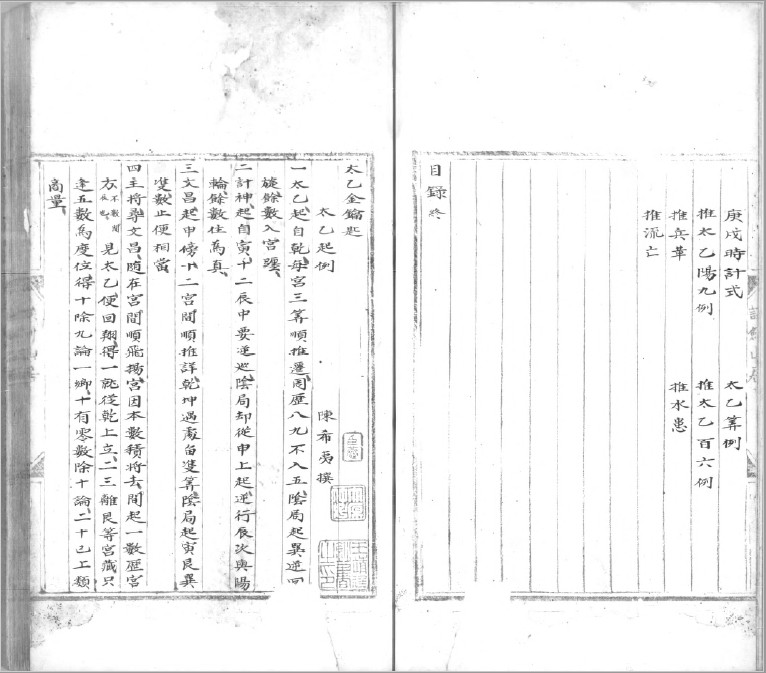 庚戌時計式 太乙筭例
推太乙陽九例 推太乙百六例
推兵革 推水患
推流亡
目錄終
太乙金鑰匙
太乙起例 陳希夷撰
一太乙起自乾每宮三筭順推遷周歷八九不入五陰局起巽逆回
旋餘數入宮躔
二計神起自寅十二辰中要逆巡陰局却從申上起逆行辰次與陽
輪餘數住為真
三文昌起申傍十二宮間順推詳乾坤遇處留雙筭陰局起寅艮巽
雙數止便相當
四主將尋文昌隨在宮間順飛揚宮因本數積將去間起一數歷宮
方 不數間辰 見太乙便回翔得一就從乾上立二三離艮等宮藏只
逢五數為度位得十除九論一鄉十有零數除十論二十已上類
商量